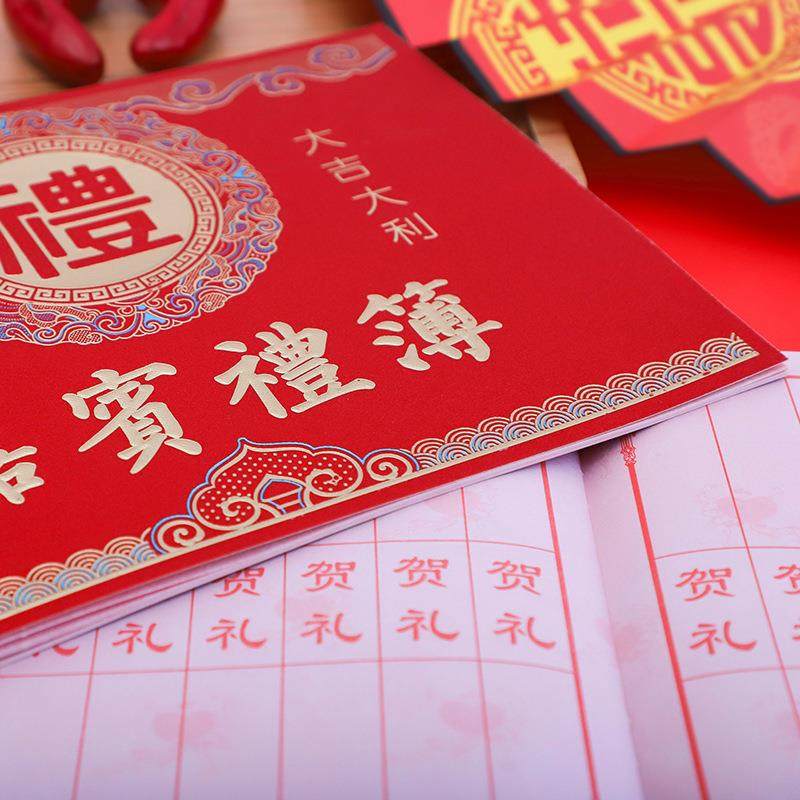 禮
大吉大利
賓禮簿
礼
贺礼
贺礼
贺礼
贺礼
贺礼